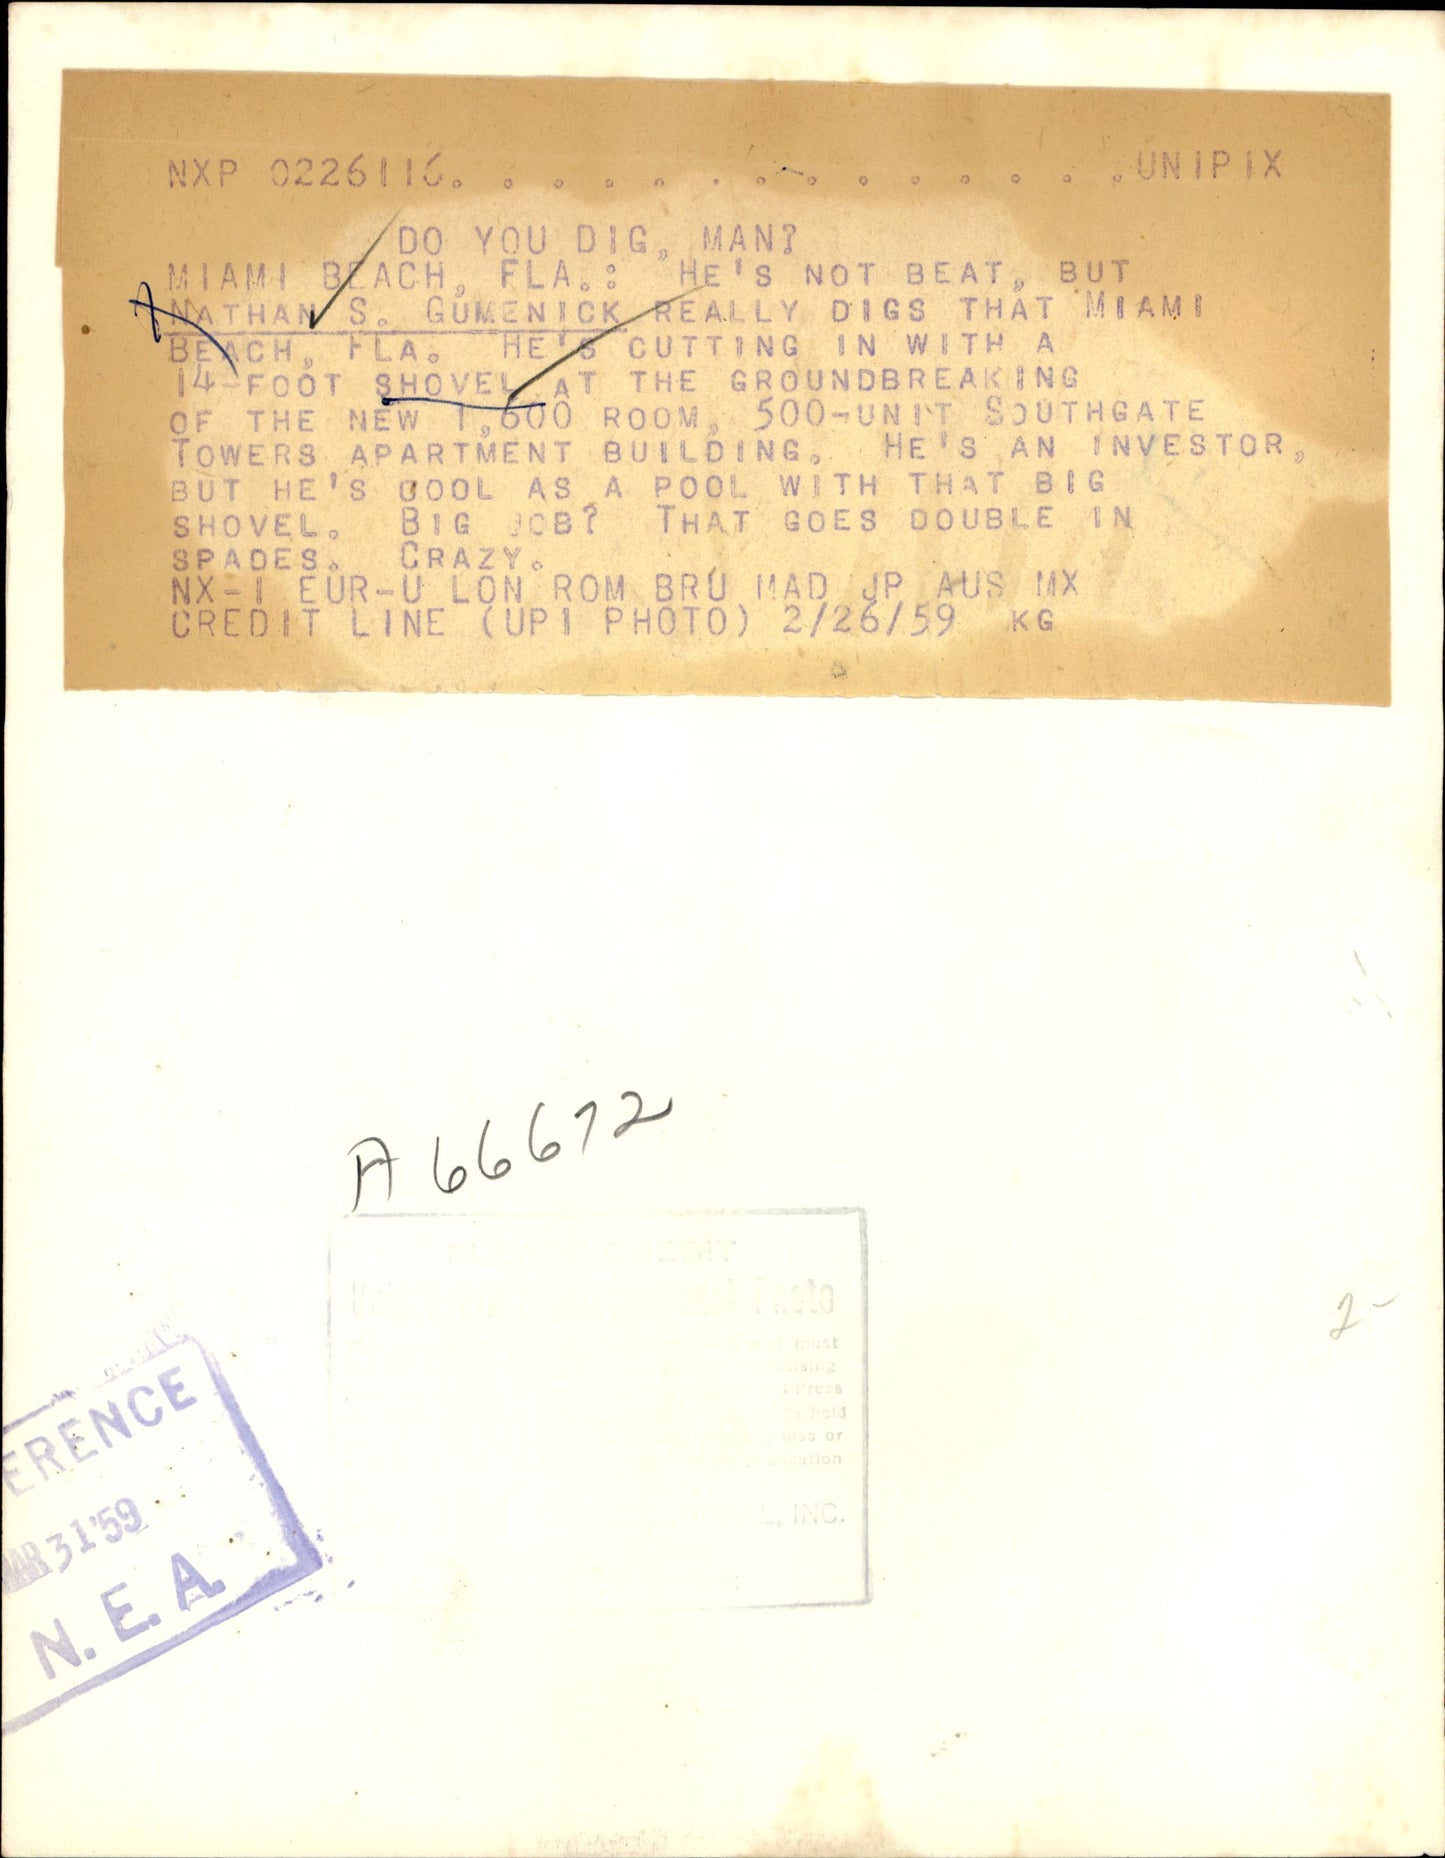 NXP 0226116. . . . . . . . . . . . . .UNIPIX
DO YOU DIG, MAN?
MIAMI BEACH, FLA.: HE'S NOT BEAT, BUT
NATHAN S. GUMENICK REALLY DIGS THAT MIAMI
BEACH, FLA. HE'S CUTTING IN WITH A
14-FOOT SHOVEL AT THE GROUNDBREAKING
OF THE NEW 1,600 ROOM, 500-UNIT SOUTHGATE
TOWERS APARTMENT BUILDING. HE'S AN INVESTOR,
BUT HE'S COOL AS A POOL WITH THAT BIG
SHOVEL. BIG JOB? THAT GOES DOUBLE IN
SPADES. CRAZY.
NX-1 EUR-U LON ROM BRU MAD JP AUS MX
CREDIT LINE (UPI PHOTO) 2/26/59 KG
A66672
CREDIT
Photo
must
Press
hold
loss or
INC.
2-
ERENCE
MAR 31 '59
N.E.A.